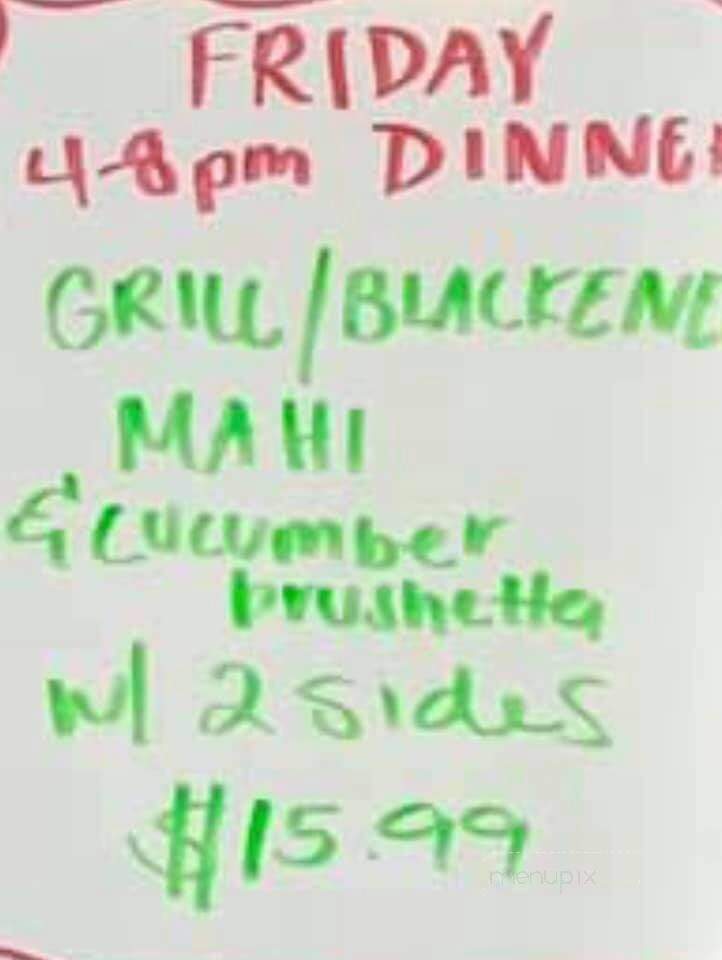 FRIDAY
4-8pm DINNE
GRILL/BLACKENE
MAHI
& cucumber
brushetta
w/ 2 sides
$15.99
menupix